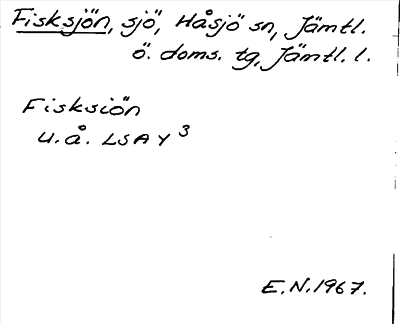 Fisksjön, sjö, Håsjö sn, Jämtl.
ö. doms. tg, Jämtl. l.
Fisksiön
u.å. LSA Y 3
E.N. 1967.